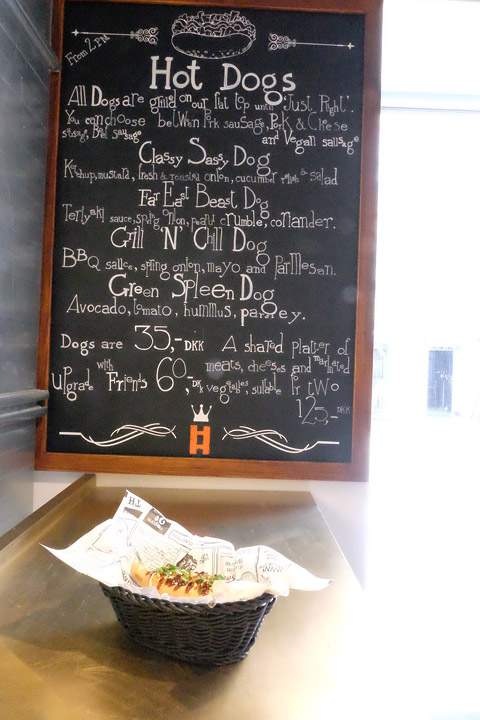 From 2 PM
Hot Dogs
All Dogs are grilled on our flat top until "Just Right".
You can choose between Pork sausage, Pork & Cheese
sausage, Beef sausage and Vegan sausage
Classy Sassy Dog
Ketchup, mustard, fresh & roasted onion, cucumber salad
Far East Beast Dog
Teriyaki sauce, spring onion, peanut crumble, coriander.
Grill 'N' Chill Dog
BBQ sauce, spring onion, mayo and Parmesan.
Green Spleen Dog
Avocado, tomato, hummus, parsley.
Dogs are 35,- DKK
upgrade with Fries 60,- DKK
A shared platter of
meats, cheeses and marinated
vegetables, suitable for two
125,- DKK
H